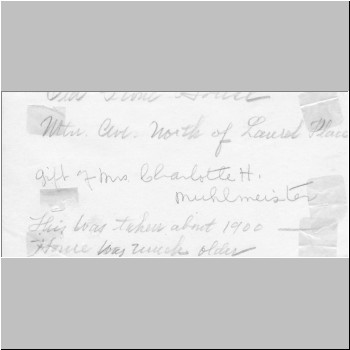 Old Stone House
Mtn. Ave. North of Laurel Place
gift of Mrs Charlotte H.
Muhlmeister
This was taken about 1900 —
House was much older